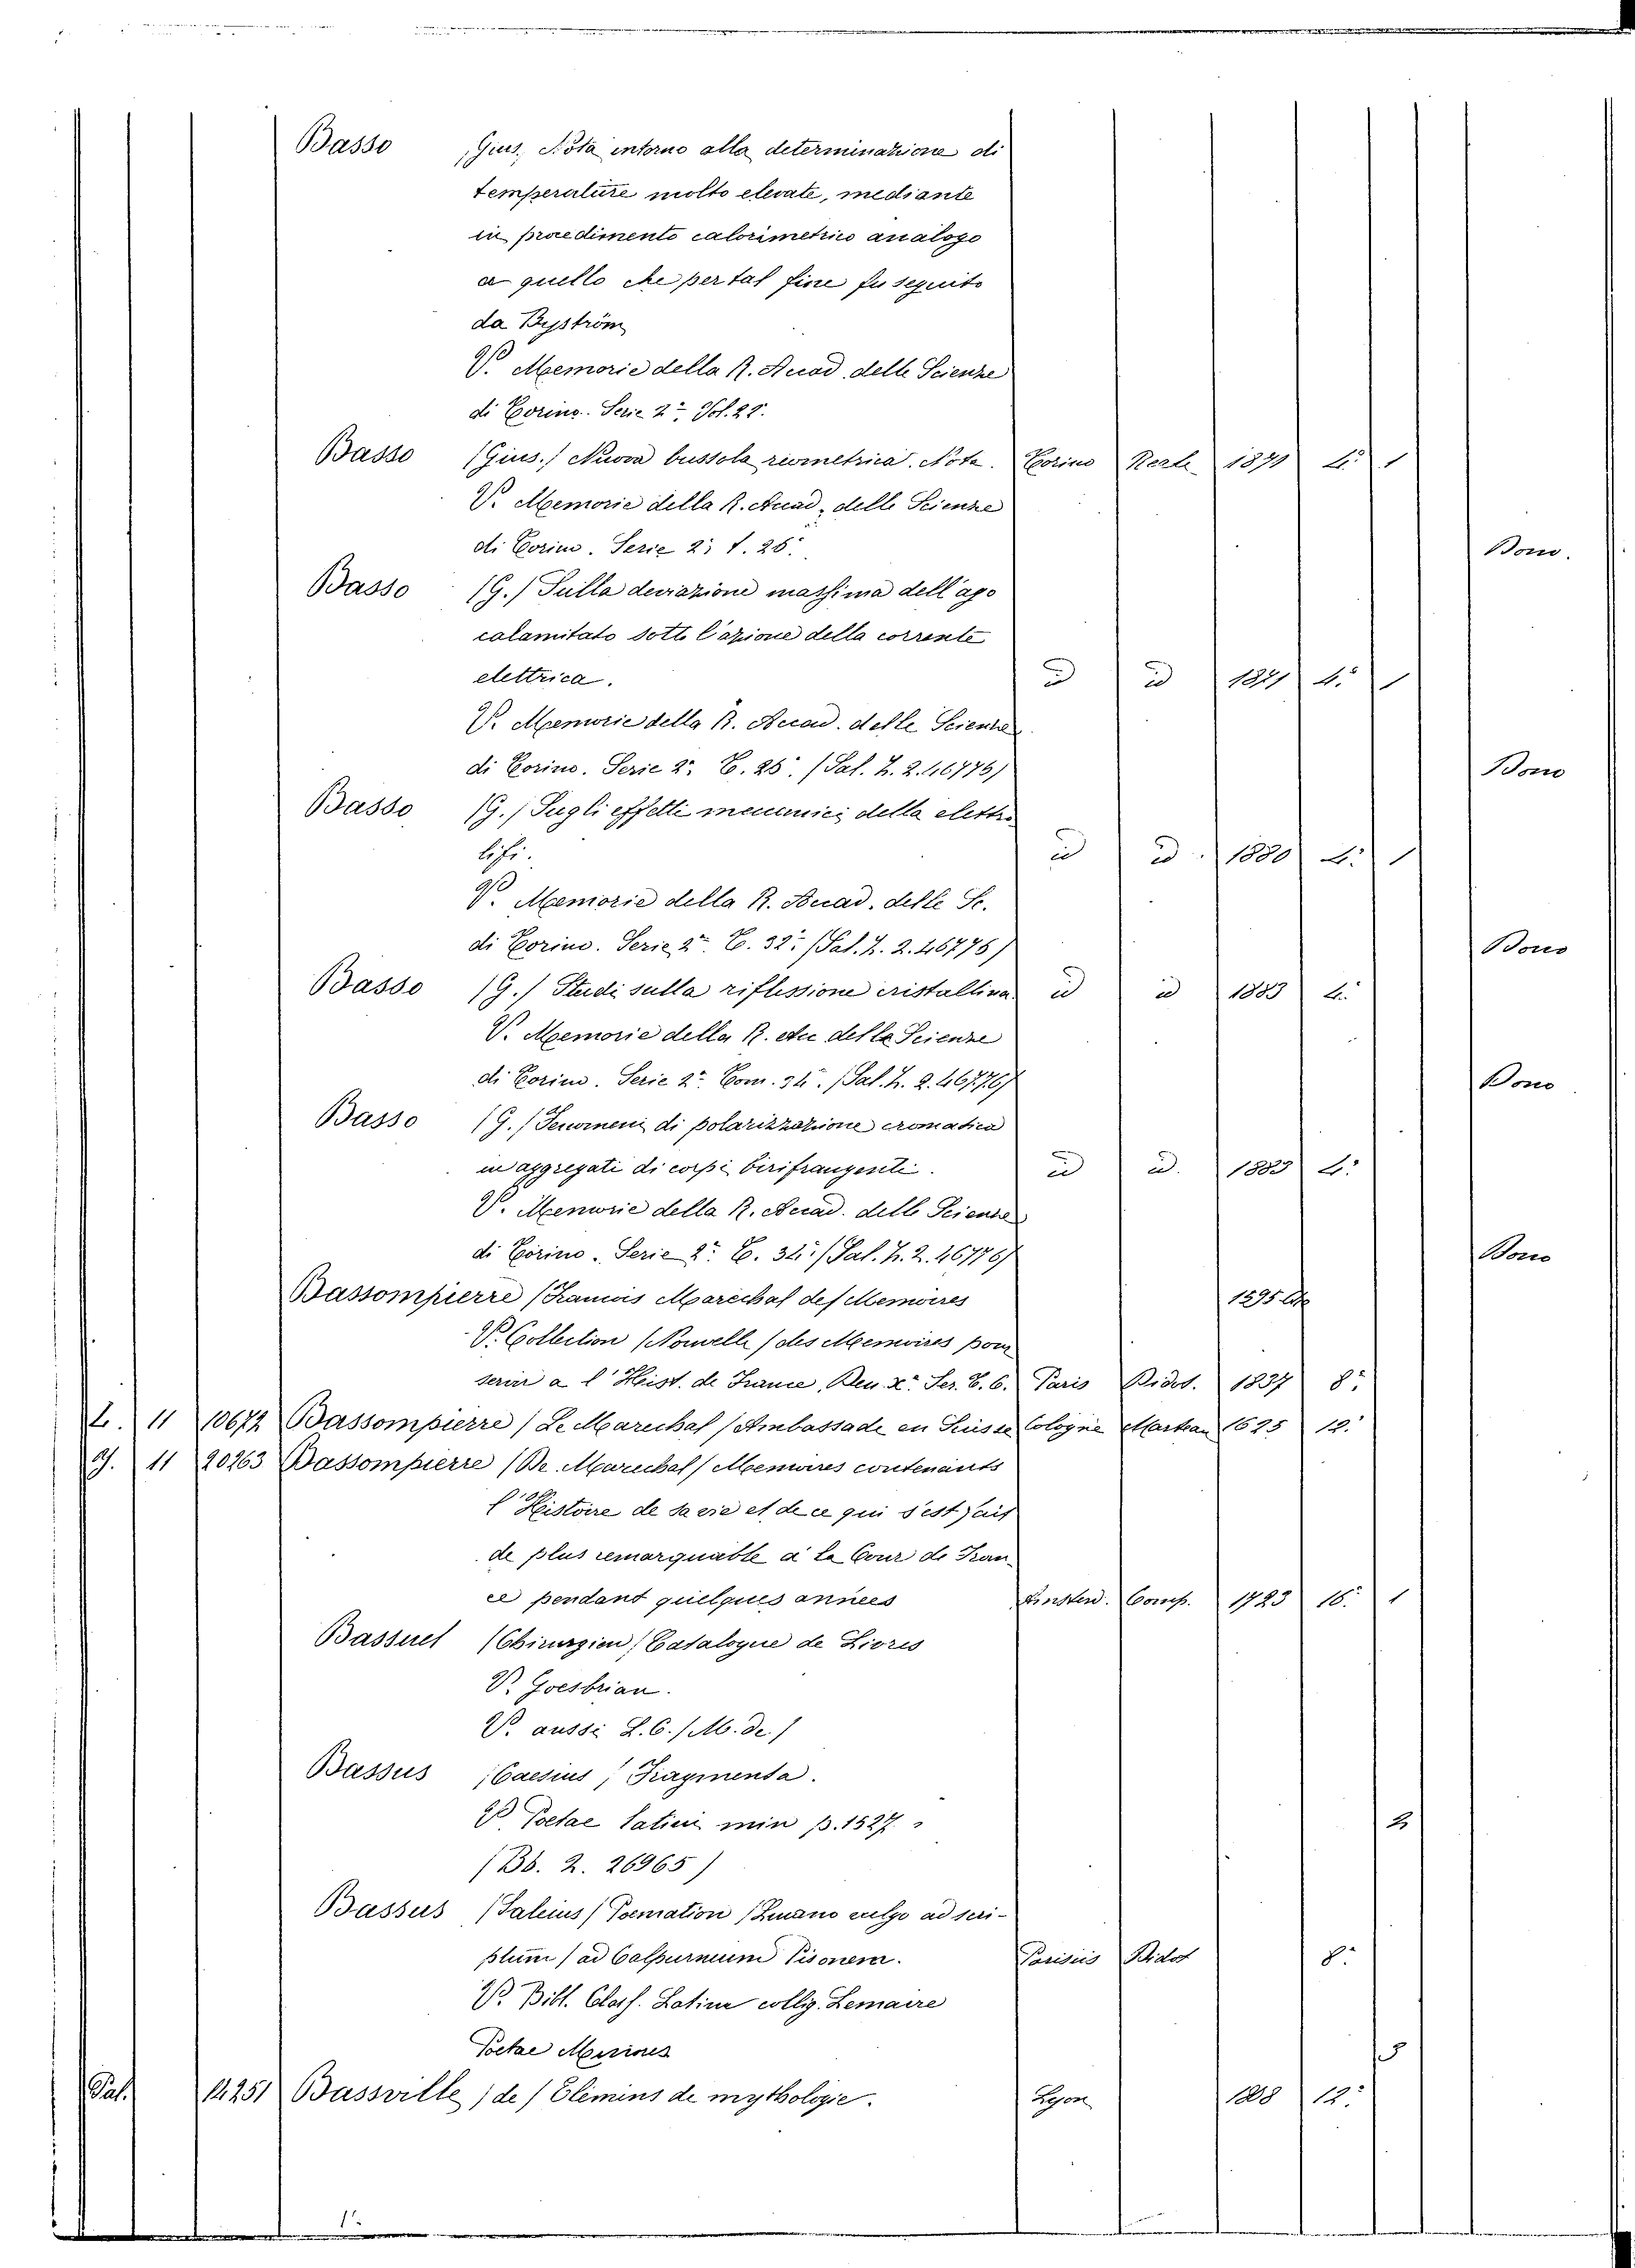 Basso (Gius, Nota intorno alla determinazione di
temperature molto elevate, mediante
un procedimento calorimetrico analogo
a quello che per tal fine fu seguito
da Byström
V. Memorie della R. Accad. delle Scienze
di Torino. Serie 2ª, Vol. 28.
Basso (Gius.) Nuova bussola reometrica. Nota. Torino Reale 1871 4.° 1
V. Memorie della R. Accad. delle Scienze
di Torino. Serie 2ª t. 26. Bono.
Basso (G.) Sulla deviazione massima dell'ago
calamitato sotto l'azione della corrente
elettrica. id id 1871 4.° 1
V. Memorie della R. Accad. delle Scienze
di Torino. Serie 2ª. T. 26. (Sal. Z. 2. 46776) Bono
Basso (G.) Sugli effetti meccanici della elettro
lisi. id id. 1880 4.° 1
V. Memorie della R. Accad. delle Sc.
di Torino. Serie 2ª. T. 32. (Sal. Z. 2. 46776) Bono
Basso (G.) Studi sulla riflessione cristallina id id 1883 4.°
V. Memorie della R. Ac delle Scienze
di Torino. Serie 2ª. Tom. 34. (Sal. Z. 2. 46776) Bono
Basso (G.) Fenomeni di polarizzazione cromatica
in aggregati di corpi birifrangenti. id id. 1883 4.°
V. Memorie della R. Accad. delle Scienze
di Torino. Serie 2ª. T. 34. (Sal. Z. 2. 46776) Bono
Bassompierre (Francois Marechal de) Memoires 1595
V. Collection (Nouvelle) des Memoires pour
servir a l'Hist. de France, Ser. T. 6. Paris Didot. 1837 8.°
11 10672 Bassompierre (Le Marechal) Ambassade en Suisse Cologne 12.°
11 20263 Bassompierre (Marechal) Memoires contenants
l'Histoire de sa vie et de ce qui s'est fait
de plus remarquable a la Cour de Fran-
ce pendant quelques années Amsterd. Comp. 1723 16.° 1
Bassuel (Chirurgien) Catalogue de Livres
V. Goesbrian.
V. aussi L. C. (M. de.)
Bassus (Caesius) Fragmenta.
V. Poetae Latini min p. 1527. 2
(Bb. 2. 26965)
Bassus (Saleius) Poemation (Lucano vulgo ad scri-
ptum) ad Calpurnium Pisonem. Parisiis Didot 8.°
V. Bibl. Class. Latine collig. Lemaire
Poetae Minores 5
Sal. 14251 Bassville (de) Elémins de mythologie. Lyon 12.°
1